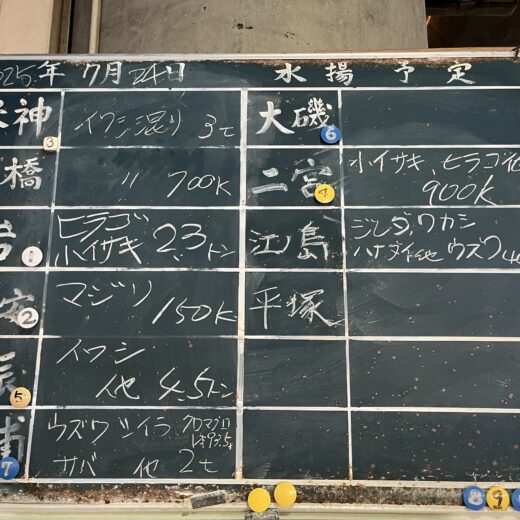 2025年 7月24日 水揚予定
米神 3 イワシ混り 3t
橋 〃 700K
岩 1 ヒラゴ
小イサキ 2.3トン
安 2 マジリ 150K
5 イワシ
他 4.5トン
浦 7 ウズワ シイラ クロマグロ
サバ 他 2t
大磯 6
二宮 4 小イサキ、ヒラゴ他
900K
江島 ワカシ
ハナダイ他 ウズワ
平塚
8 9